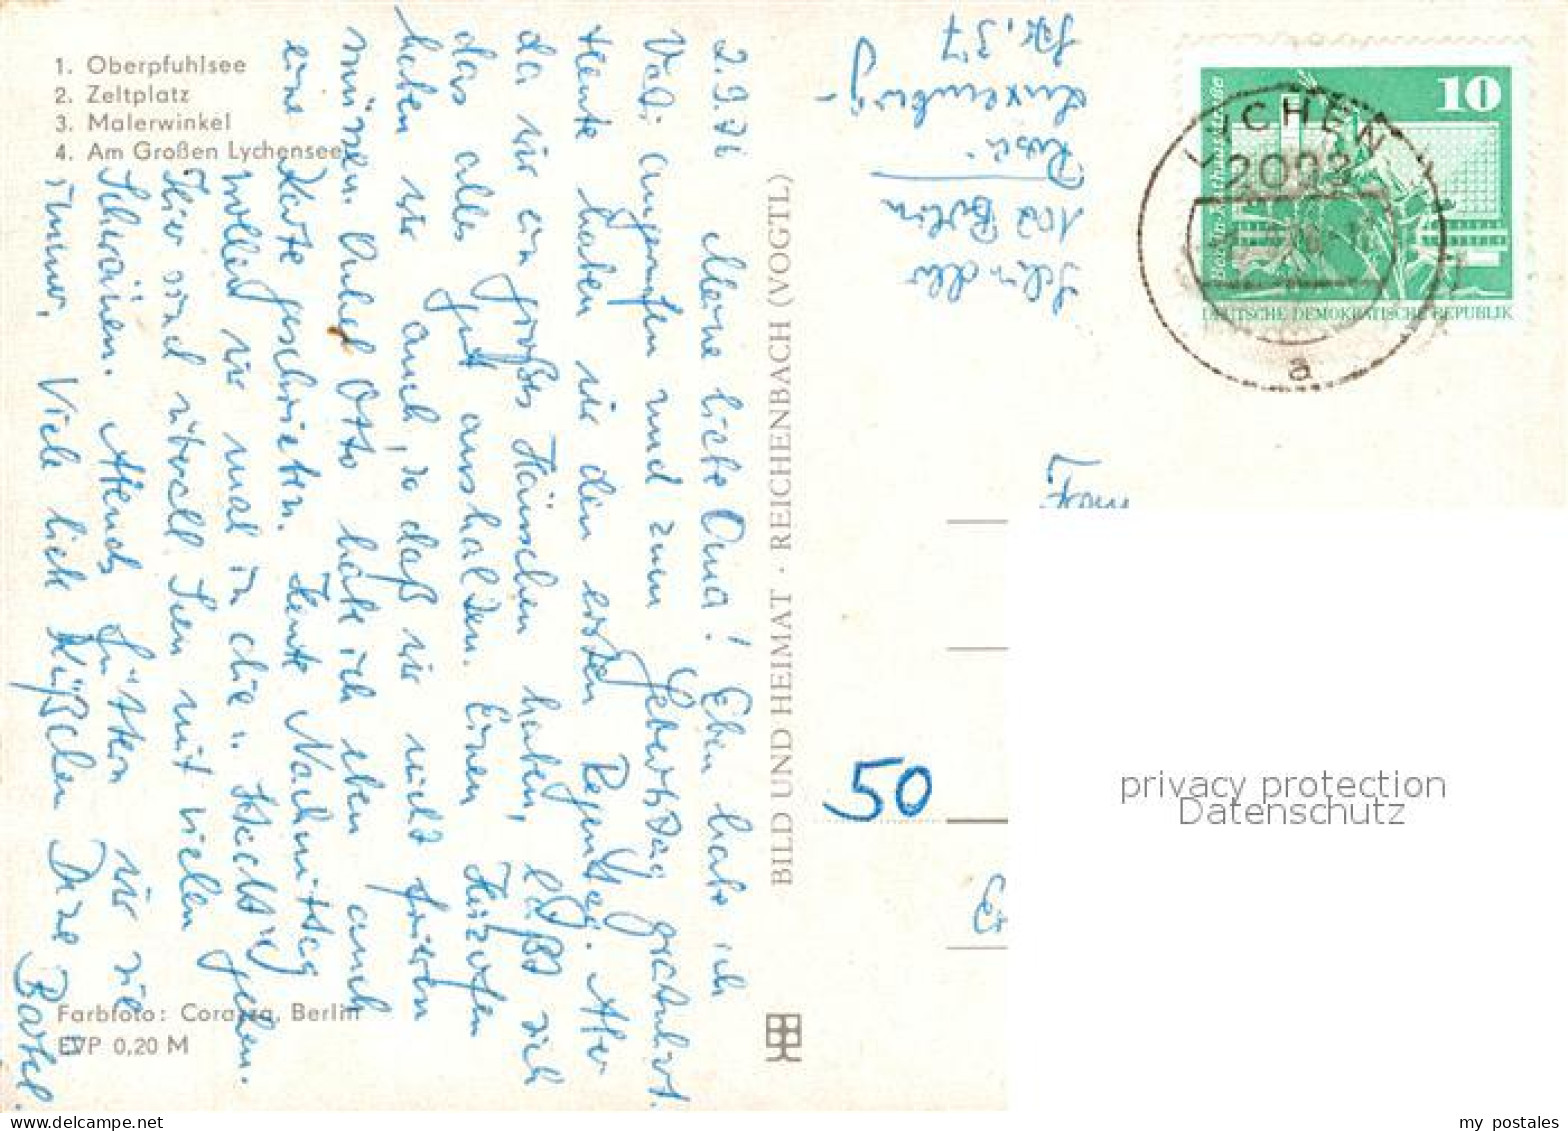 1. Oberpfuhlsee
2. Zeltplatz
3. Malerwinkel
4. Am Großen Lychensee
2.9.76 Meine liebe Oma! Eben habe ich
Vati angerufen und zum Geburtstag gratuliert.
Heute haben wir den ersten Regentag. Aber
da wir ein großes Häuschen haben, läßt sich
das alles gut aushalten. Einen Heizofen
haben wir auch, so daß wir nicht frieren
müssen. Onkel Otto habe ich eben auch
eine Karte geschrieben. Heute Nachmittag
wollen wir mal in die "Hecht" gehen.
Hier sind überall Seen mit vielen
Schwänen. Abends füttern wir sie
immer. Viele liebe Küßchen Deine Bärbel.
Farbfoto: Corazza, Berlin
EVP 0,20 M
BILD UND HEIMAT · REICHENBACH (VOGTL)
102 Berlin
Rosa
Luxemburg-
Str. 37
10
DEUTSCHE DEMOKRATISCHE REPUBLIK
LYCHEN
2093
a
Frau
50
privacy protection
Datenschutz
my postales